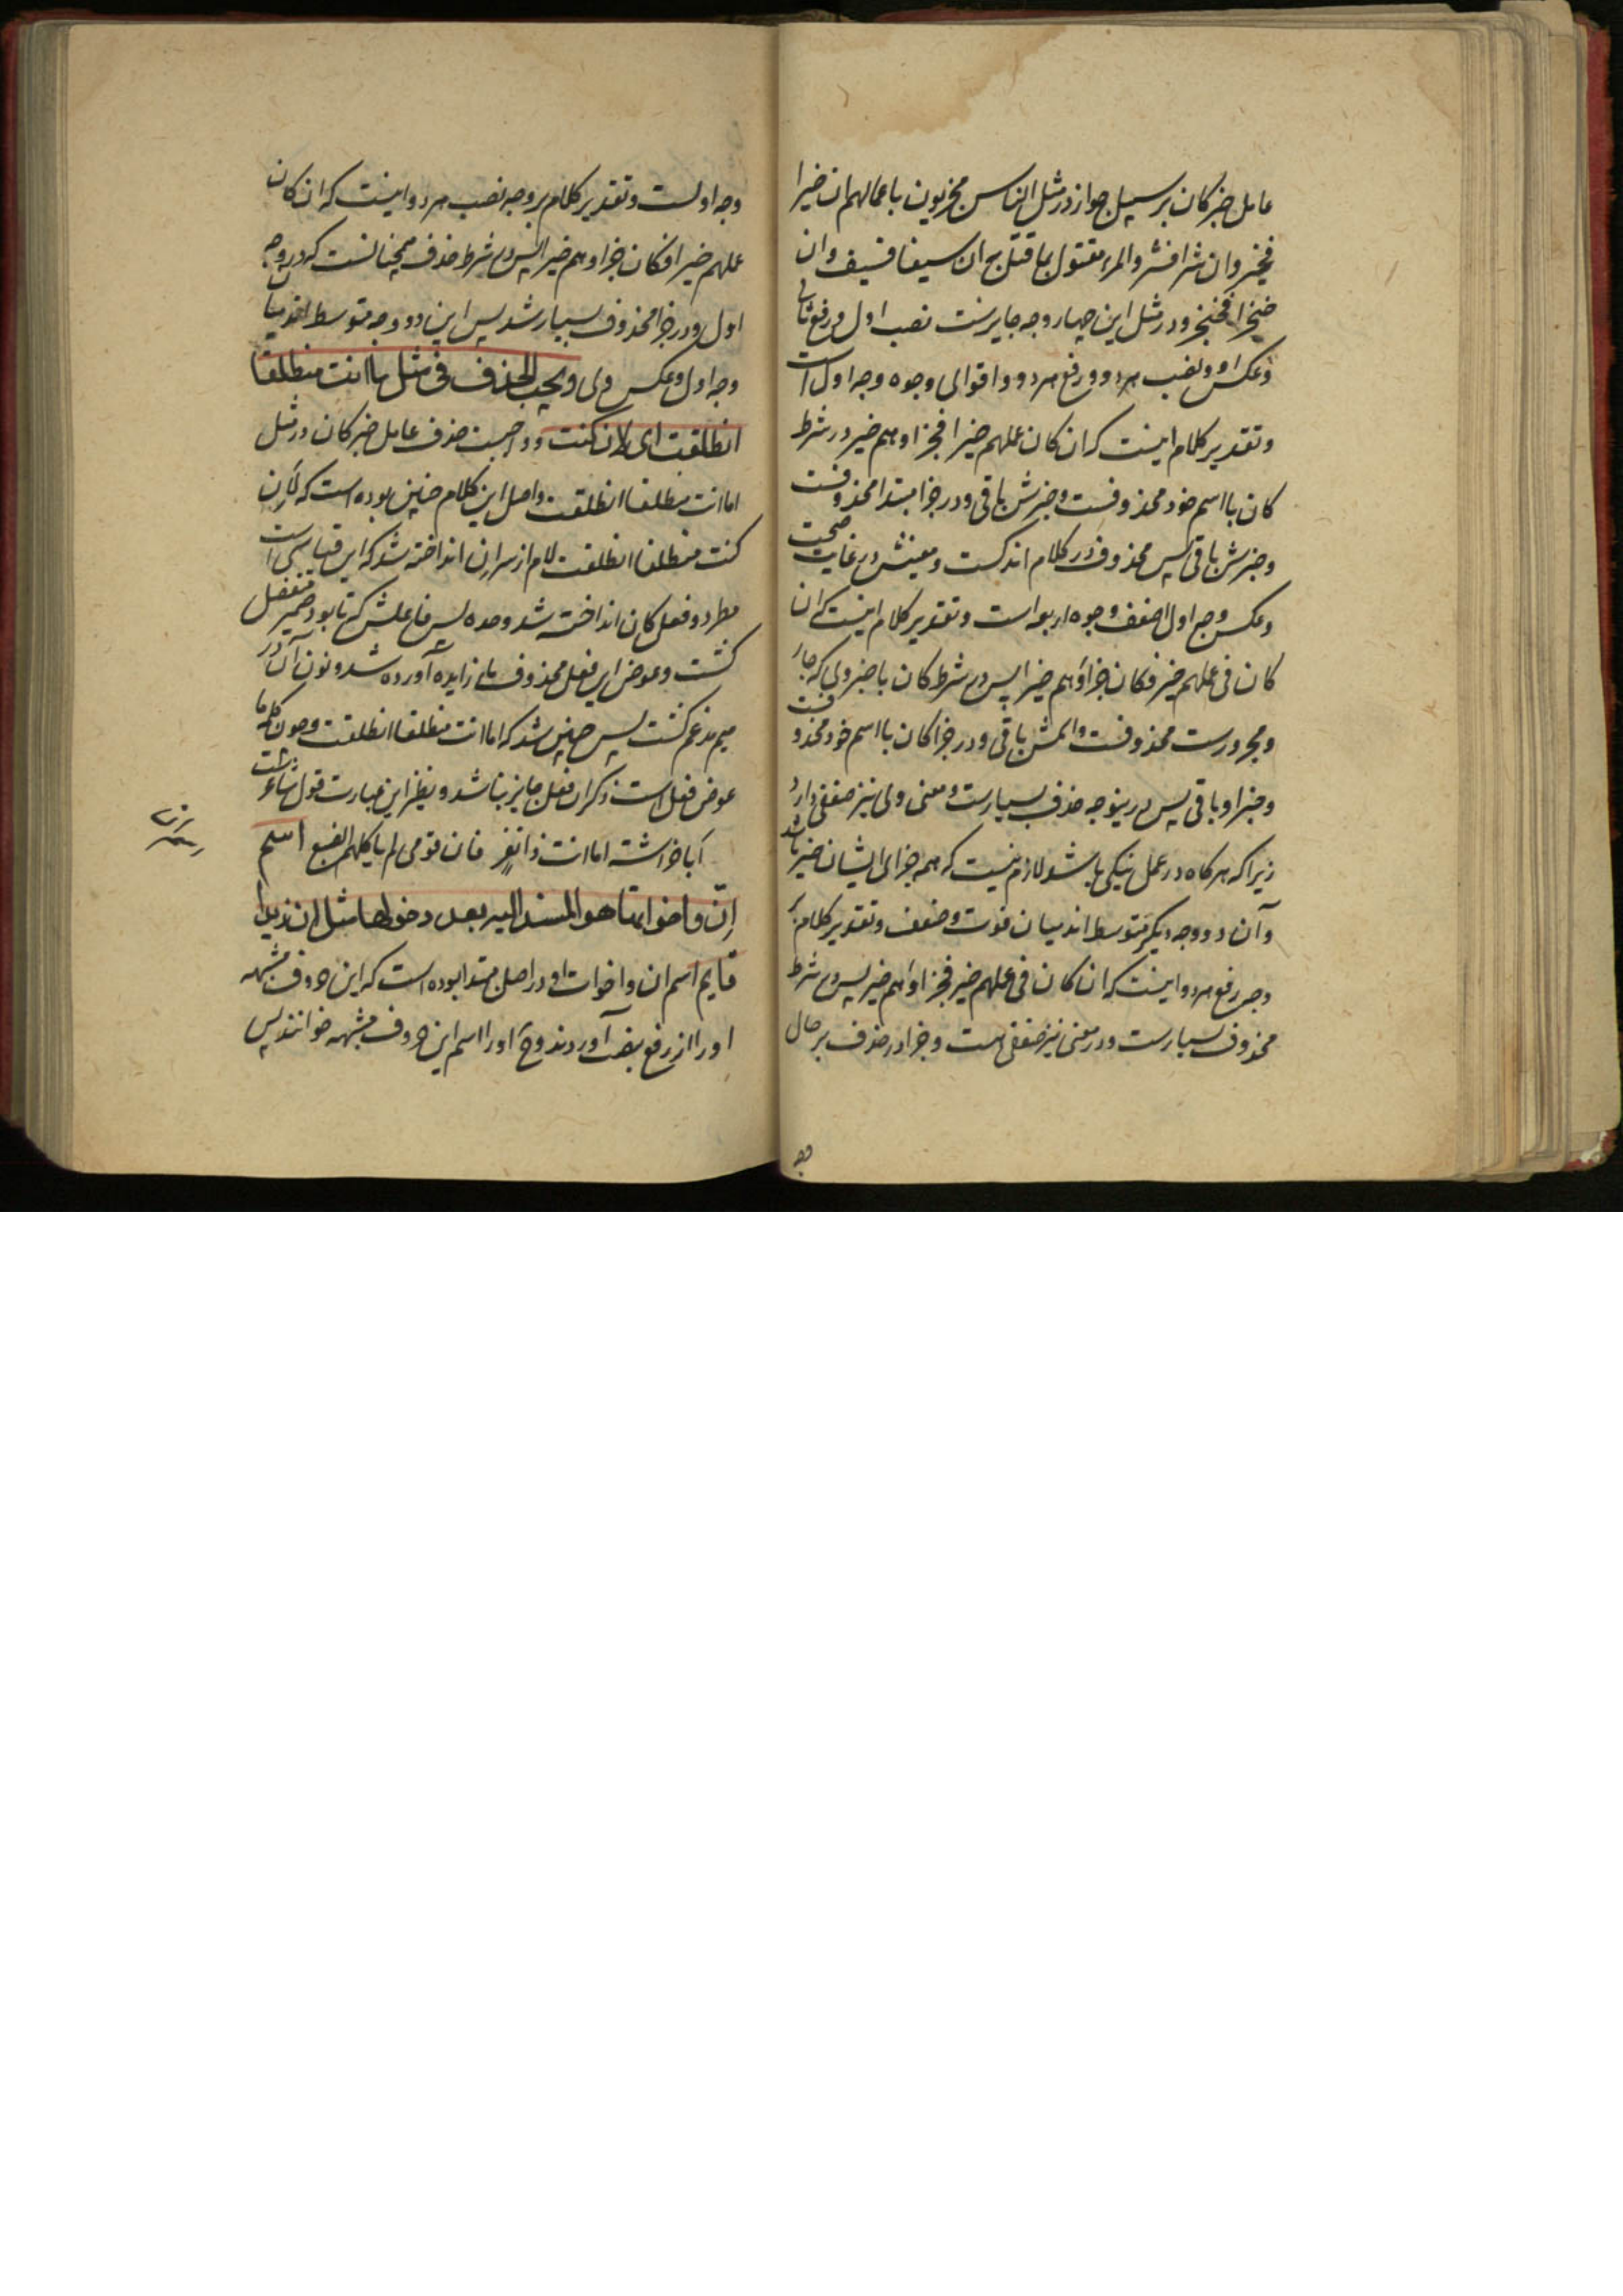 عامل خبر کان بر سبیل جواز در مثل الناس مجزیون باعمالهم ان خیرا
فخیر وان شرا فشر والمرء مقتول بما قتل به ان سیفا فسیف وان
خنجرا فخنجر و در مثل این چهار وجه جایزست نصب اول و رفع ثانی
و عکس او و نصب هر دو و رفع هر دو و اقوای وجوه وجه اول است
و تقدیر کلام اینست که ان کان عملهم خیرا فجزاوهم خیر در شرط
کان با اسم خود محذوفست و خبرش باقی و در جزا مبتدا محذوفست
و خبرش باقی پس محذوف در کلام اندکست و معینش در غایت صحت
و عکس وجه اول اضعف وجوه اربعه است و تقدیر کلام اینست که ان
کان فی عملهم خیر فکان جزاؤهم خیرا پس در شرط کان با خبر ولی که جار
و مجرورست محذوفست و اسمش باقی و در جزا کان با اسم خود محذوفست
و خبر او باقی پس درینوجه حذف بسیارست و معنی ولی نیز ضعفی دارد
زیرا که هر کاه در عمل نیکی باشد لازم نیست که همه جزای ایشان خیر باشد
وآن دو وجه دیکر متوسط اند میان قوت وضعف و تقدیر کلام بر
وجه رفع هر دو اینست که ان کان فی عملهم خیر فجزاؤهم خیر پس در شرط
محذوف بسیارست و در معنی نیز ضعفی هست و جزا در حذف بر حال
وجه
وجه اولست و تقدیر کلام بر وجه نصب هر دو اینست که ان کان
عملهم خیرا فکان جزاوهم خیرا پس در شرط حذف همچنانست که در وجه
اول و در جزا محذوف بسیار شد پس این دو وجه متوسط اند میان
وجه اول و عکس ولی ویجب الحذف فی مثل اما انت منطلقا
انطلقت ای لان کنت و واجبست حذف عامل خبر کان در مثل
اما انت منطلقا انطلقت و اصل این کلام چنین بوده است که لان
کنت منطلقا انطلقت لام از سر ان انداخته شد که این قیاسی است
مطرد و فعل کان انداخته شد وحده پس فاعلش که تا بود ضمیر منفصل
کشت و عوض این فعل محذوف مای زایده آورده شد و نون آن در
میم مدغم کشت پس چنین شد که اما انت منطلقا انطلقت و چون کلمه ما
عوض فعل است ذکر ان فعل جایز نباشد و نظیر این عبارت قول شاعر است
اباخراشة اما انت ذا نفر فان قومی لم یاکلهم الضبع اسم
ان واخواتها هو المسند الیه بعد دخولها مثل ان زیدا
قایم اسم ان و اخوات او در اصل مبتدا بوده است که این حروف مشبهه
او را از رفع بنصب آوردند و او را اسم این حروف مشبهه خوانند پس